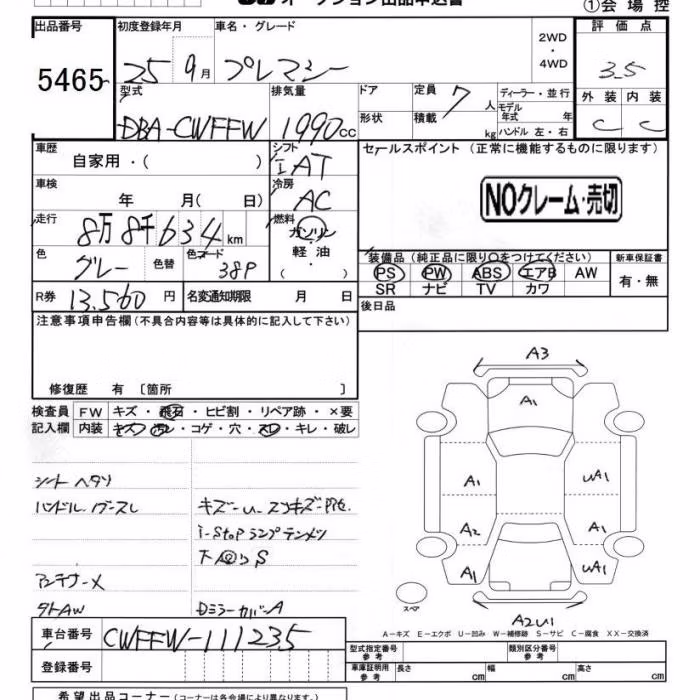 オークション出品申込書
①会場控
出品番号 初度登録年月 車名・グレード 2WD・4WD 評価点
5465 25 9月 プレマシー 3.5
型式 排気量 ドア 定員 7 人 ディーラー・並行 外装 内装
DBA-CWFFW 1990cc 形状 積載 kg モデル年式 年 ハンドル 左・右 C C
車歴 自家用・( ) シフト IAT セールスポイント (正常に機能するものに限ります)
車検 年 月( 日) 冷房 AC
NOクレーム・売切
走行 8万8千634km 燃料 ガソリン 軽油 ( ・ )
色 グレー 色替 色コード 38P
装備品 (純正品に限り○をつけてください) 新車保証書
PS PW ABS エアB AW 有・無
SR ナビ TV カワ
R券 13,560円 名変通知期限 月 日 後日品
注意事項申告欄 (不具合内容等は具体的に記入して下さい)
修復歴 有 〔箇所 〕
検査員 FW キズ・飛石・ヒビ割・リペア跡・×要
記入欄 内装 キズ・汚レ・コゲ・穴・スレ・キレ・破レ
シートヘタリ
ハンドル
i-stopランプテンメツ
アンテナ-X
タトAW DミラーカバーA
A3
A1
A1 UA1
A2 A1
A1 UA1
スペア
A2U1
A－キズ E－エクボ U－凹み W－補修跡 S－サビ C－腐食 XX－交換済
車台番号 CWFFW-111235
登録番号
型式指定番号 参考 類別区分番号 参考
車庫証明用 参考 長さ cm 幅 cm 高さ cm
希望出品コーナー (コーナーは各会場により異なります。)